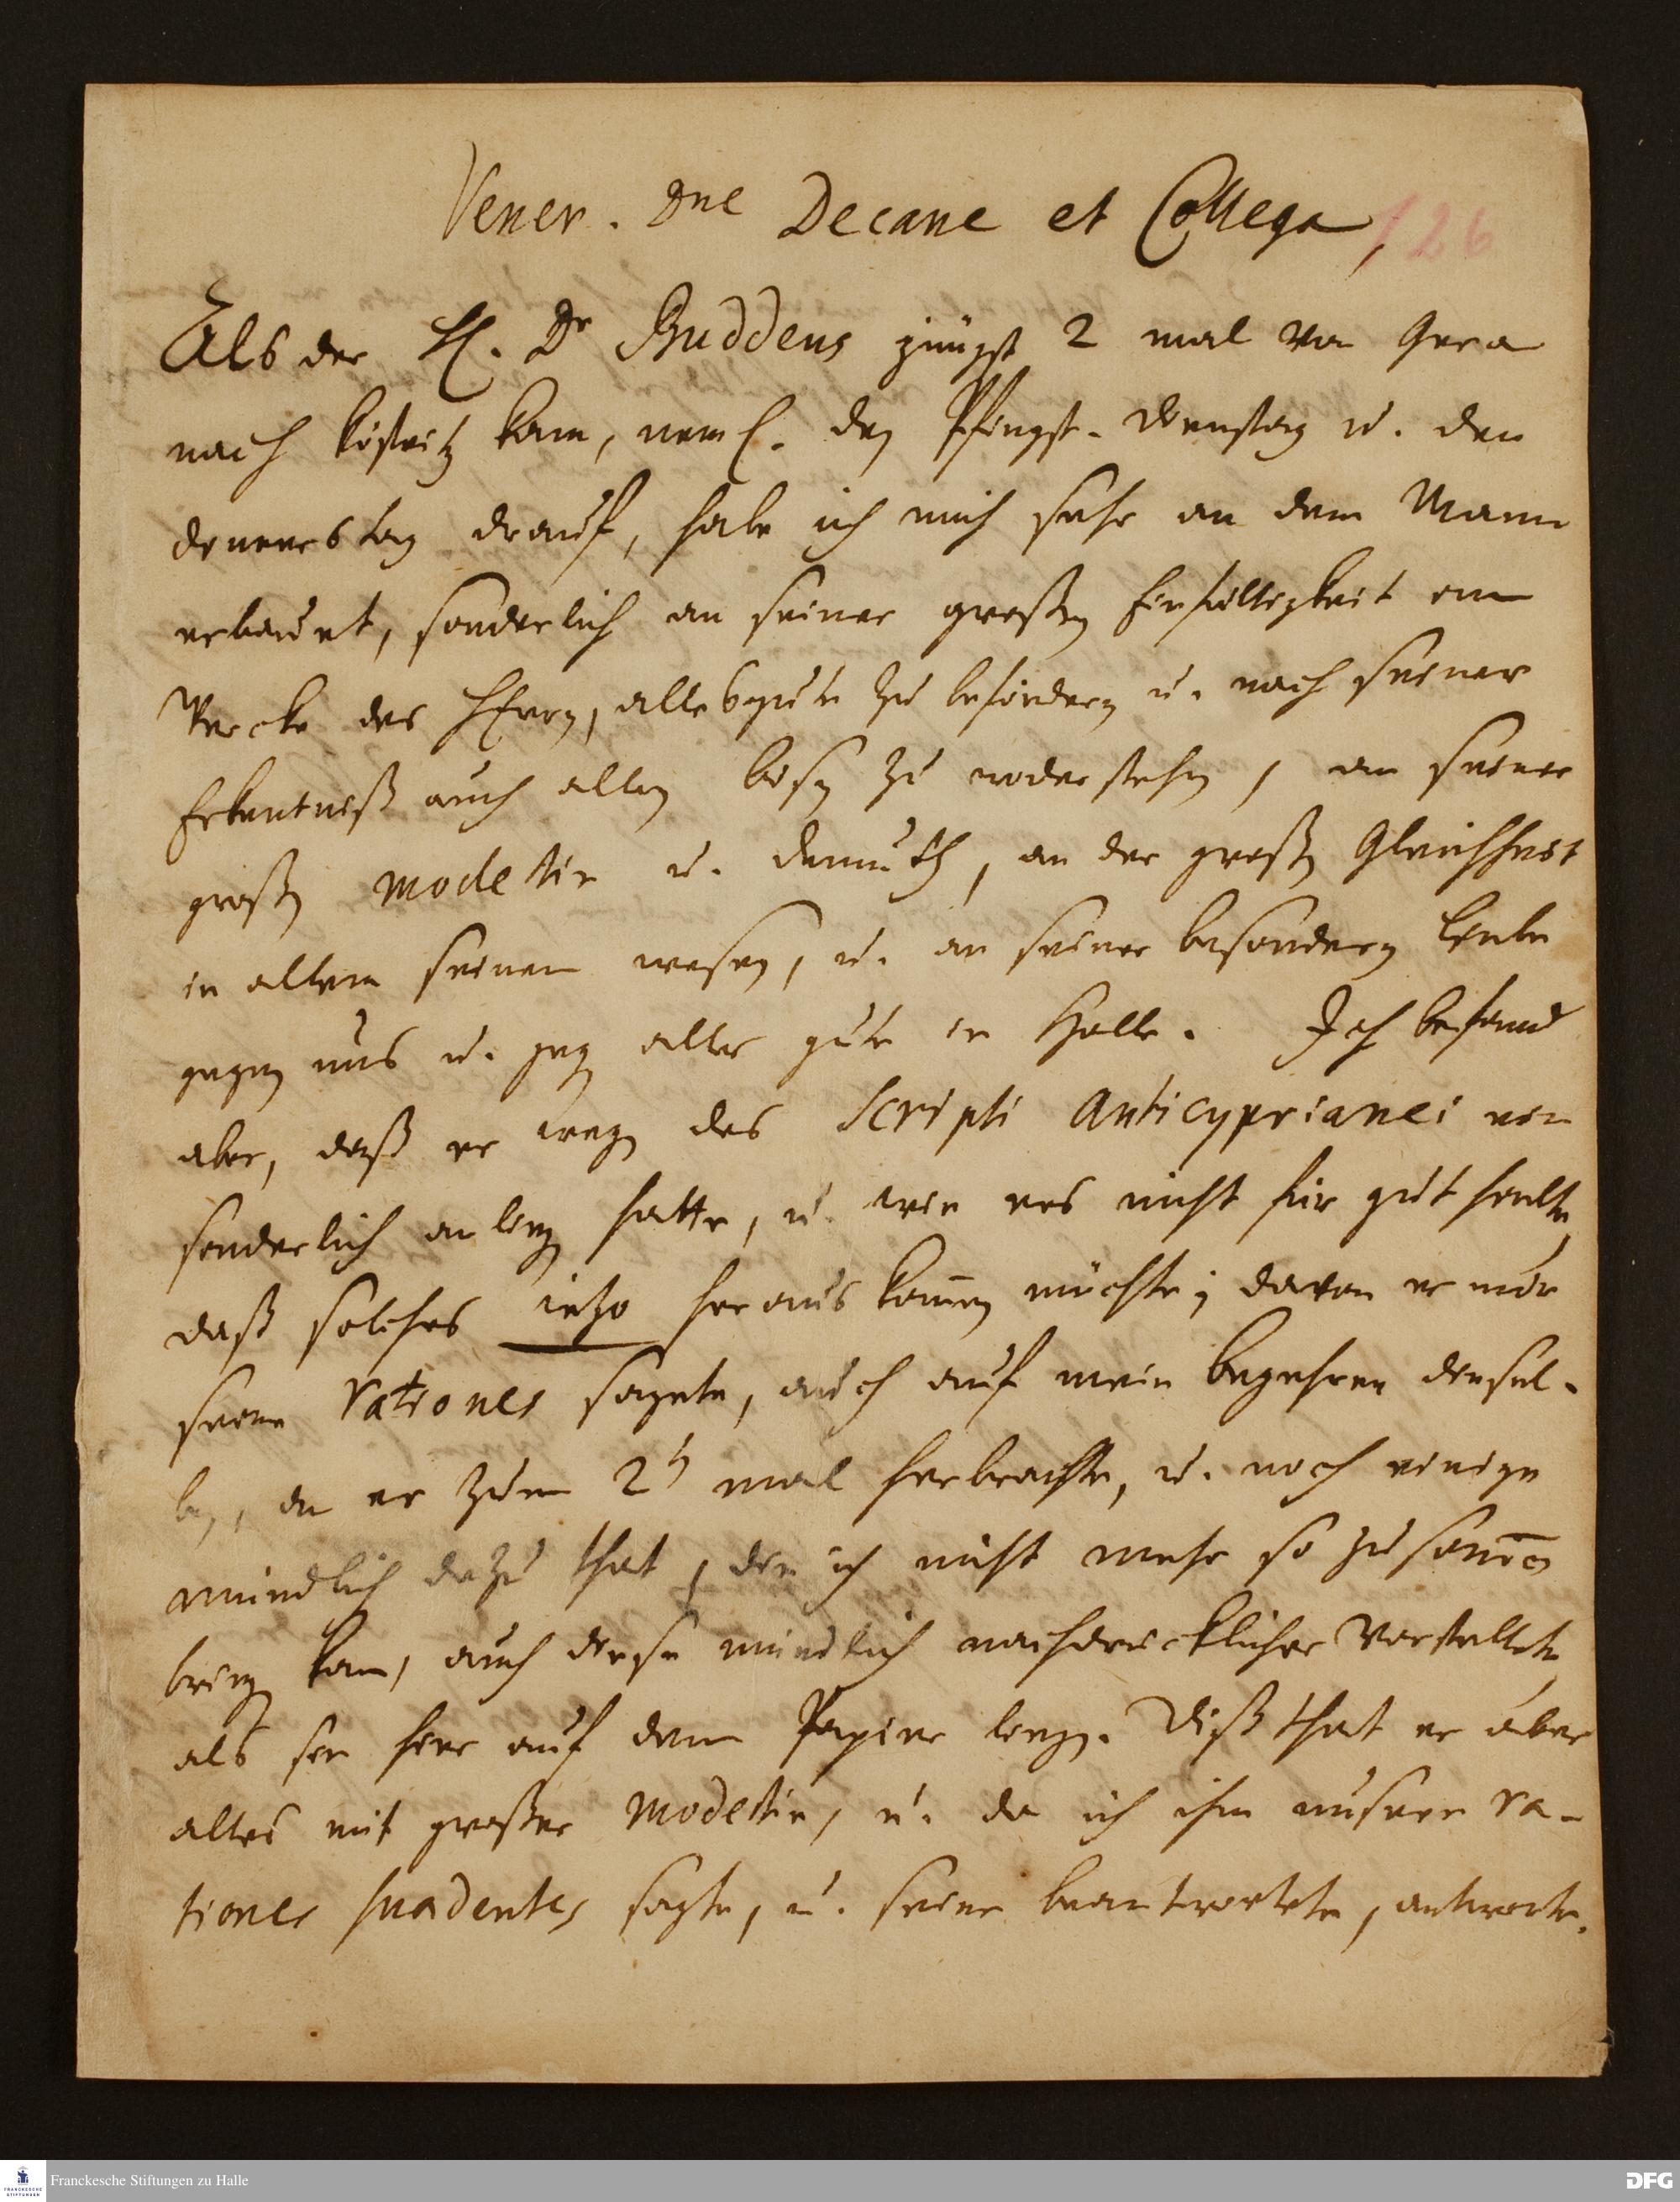 Vener. Dne Decane et Collega,
126
Als der H. Dr Buddeus jüngst 2 mal von Gera
nach Köstritz kam, neml. den Pfingst-dienstag u. den
donnerstag drauf, habe ich mich sehr an dem Mann
erbauet, sonderlich an seiner großen Einfältigkeit im
Wercke des HErrn, alles gute zu befördern u. nach seiner
Erkentniß auch allen bösen zu widerstehen, an seiner
großen modestie u. demuth, an der großen Gleichheit
in allem seinem wesen, u. an seiner besondern Liebe
gegen uns u. gegen alles gute in Halle. Ich befand
aber, daß er wegen des Scripti Anticyprianei ein
sonderlich anliegen hatte, u. wie ers nicht für gut hielte,
daß solches ietzo heraus kommen möchte; davon er mir
seine rationes sagete, auch auf mein begehren diesel-
ben, da er zum 2ten mal herbrachte, u. noch einige
mündlich dazu that, die ich nicht mehr so zusammen
bringen kan, auch diese mündlich nachdrücklicher vorstellete
als sie hier auf dem Papier liegen. Diß that er aber
alles mit großer modestie, u. da ich ihm unsere ra-
tiones suadentes sagte, u. seine beantwortete, antworte-
Franckesche Stiftungen zu Halle
DFG